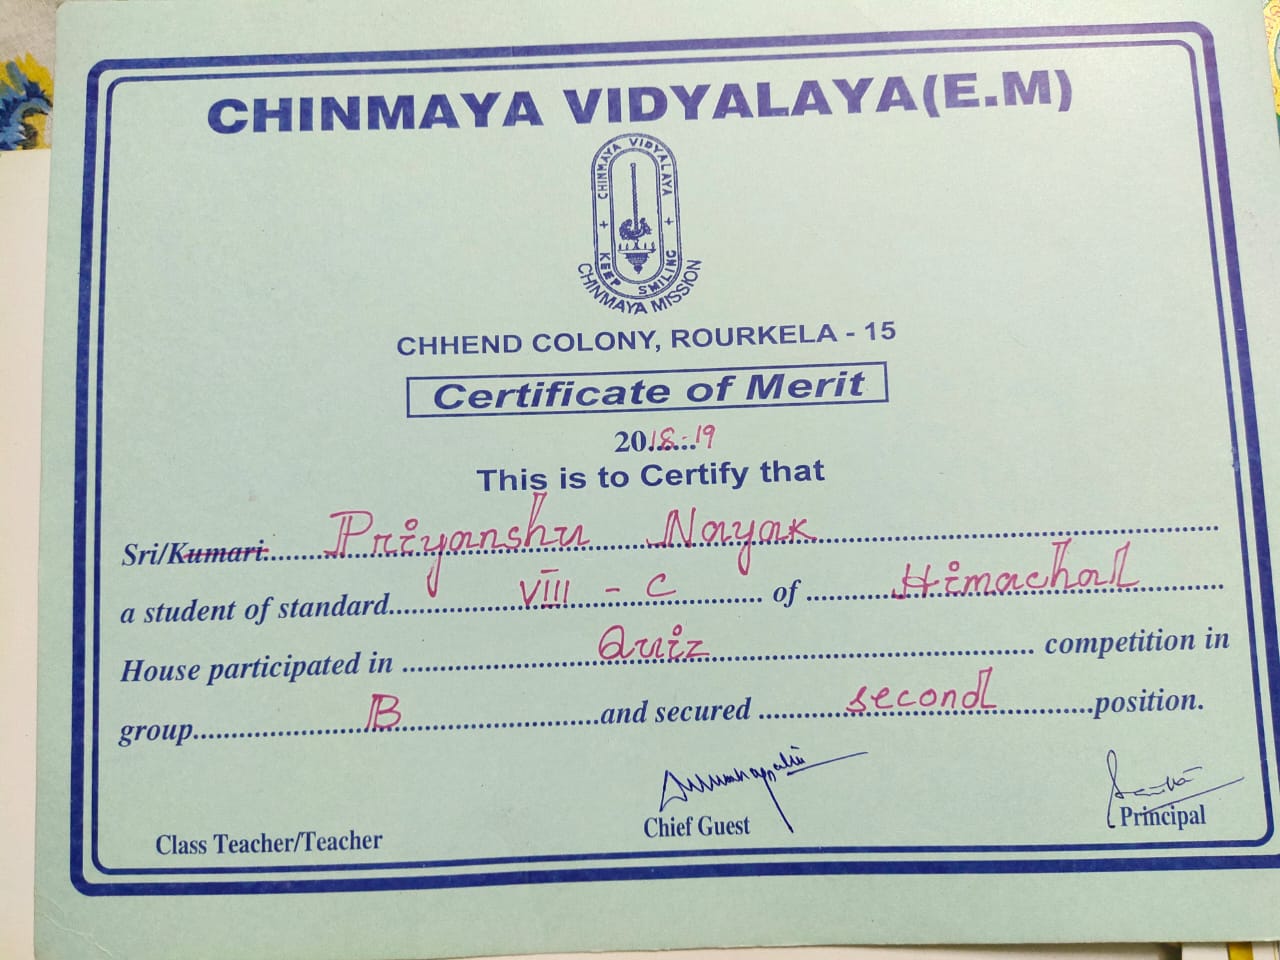 CHINMAYA VIDYALAYA(E.M)
CHINMAYA VIDYALAYA
KEEP SMILING
CHINMAYA MISSION
CHHEND COLONY, ROURKELA - 15
Certificate of Merit
2018-19
This is to Certify that
Sri/Kumari: Priyanshu Nayak
a student of standard VIII - C of Himachal
House participated in Quiz competition in
group B and secured second position.
Class Teacher/Teacher Chief Guest Principal